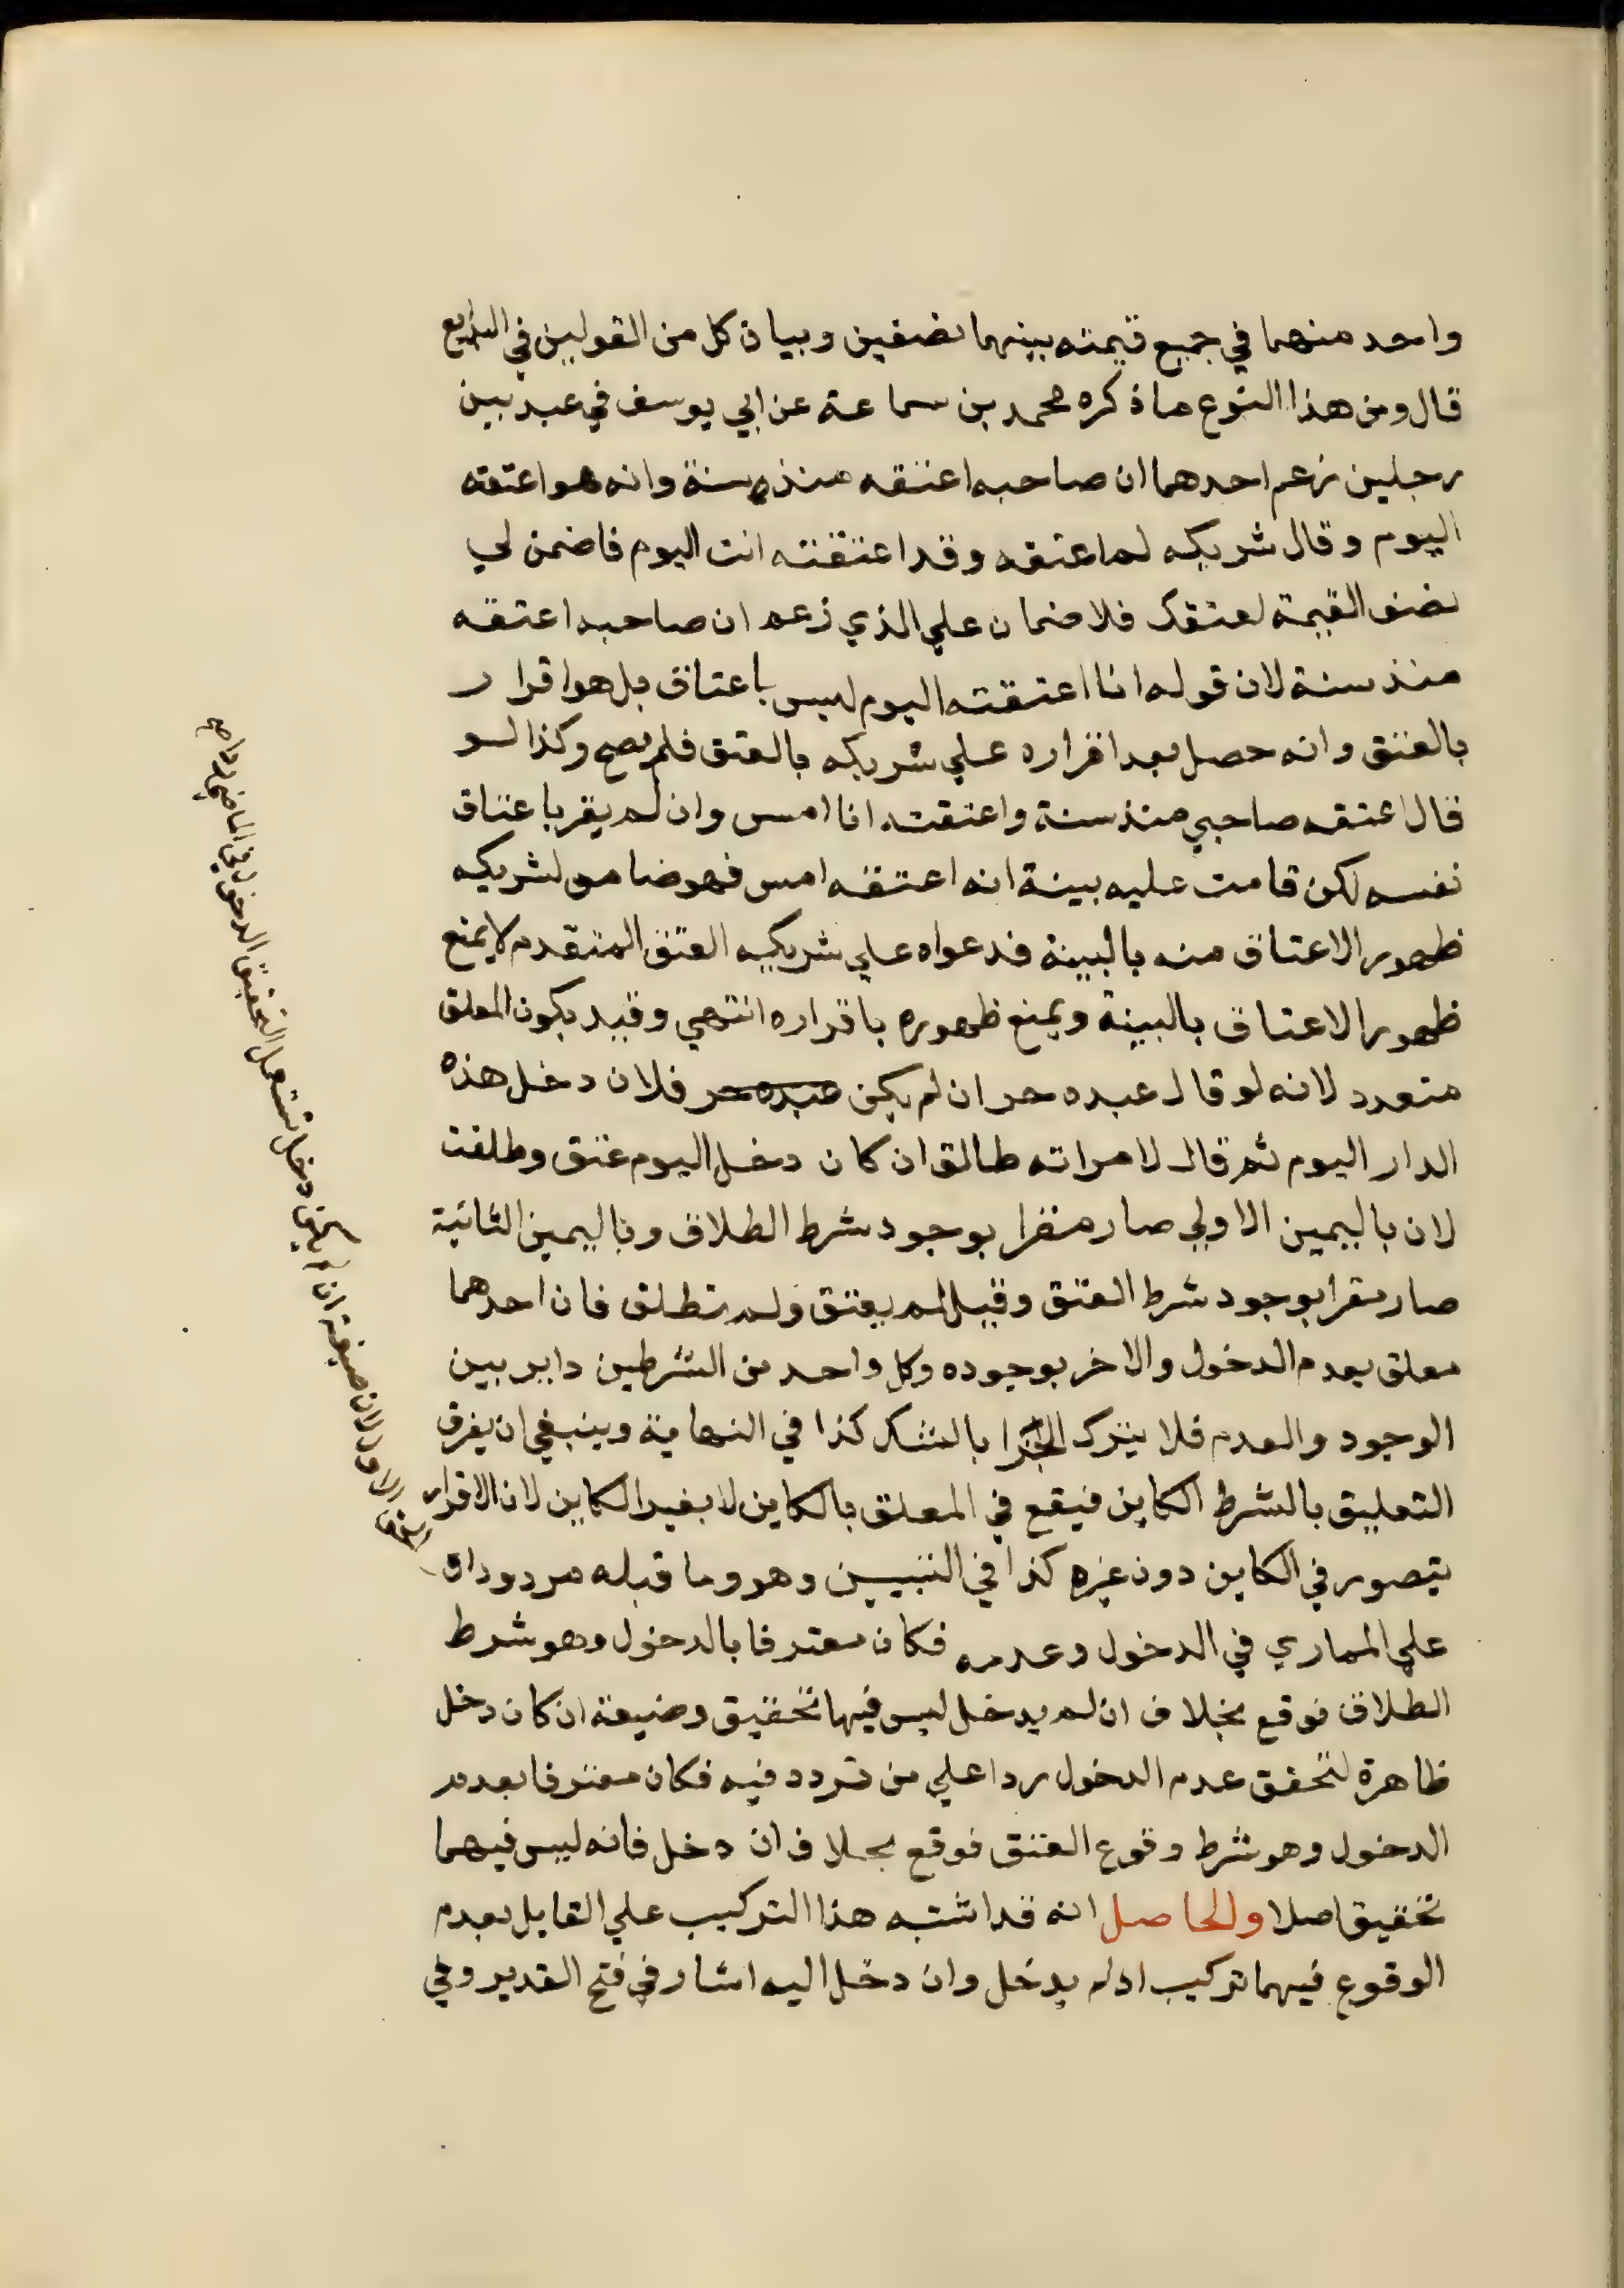 واحد منهما في جميع قيمته بينهما نصفين وبيان كل من القولين في البدايع
قال ومن هذا النوع ما ذكره محمد بن سماعة عن ابي يوسف في عبد بين
رجلين زعم احدهما ان صاحبه اعتقه منذ سنة وانه هو اعتقه
اليوم وقال شريكه لم اعتقه وقد اعتقته انت اليوم فاضمن لي
نصف القيمة لعتقك فلا ضمان علي الذي زعم ان صاحبه اعتقه
منذ سنة لان قوله انا اعتقته اليوم ليس باعتاق بل هو اقرار
بالعتق وانه حصل بعد اقراره علي شريكه بالعتق فلم يصح وكذا لو
قال اعتقه صاحبي منذ سنة واعتقته انا امس وان لم يقر باعتاق
نفسه لكن قامت عليه بينة انه اعتقه امس فهو ضامن لشريكه
ظهور الاعتاق منه بالبينة فدعواه علي شريكه العتق المتقدم لا يمنع
ظهور الاعتاق بالبينة ويمنع ظهوره باقراره انتهي وقيد بكون المعلق
متعدد لانه لو قال عبده حر ان لم يكن عبده حر فلان دخل هذه
الدار اليوم ثم قال لامراته طالق ان كان دخل اليوم عتق وطلقت
لان باليمين الاولي صار مقرا بوجود شرط الطلاق وباليمين الثانية
صار مقرا بوجود شرط العتق وقيل لم يعتق ولم تطلق فان احدهما
معلق بعدم الدخول والاخر بوجوده وكل واحد من الشرطين داير بين
الوجود والعدم فلا يترك الجزا بالشك كذا في النهاية وينبغي ان يفرق
التعليق بالشرط الكاين فيقع في المعلق بالكاين لا بغير الكاين لان الاقرار
يتصور في الكاين دون غيره كذا في التبيين وهو وما قبله مردودان
علي المماري في الدخول وعدمه فكان معترفا بالدخول وهو شرط
الطلاق فوقع بخلاف ان لم يدخل ليس فيها تحقيق وصيغة ان كان دخل
ظاهرة لتحقق عدم الدخول ردا علي من تردد فيه فكان معترفا بعدم
الدخول وهو شرط وقوع العتق فوقع بخلاف ان دخل فانه ليس فيهما
تحقيق اصلا والحاصل انه قد اشتبه هذا التركيب علي القايل بعدم
الوقوع فيهما تركيب ان لم يدخل وان دخل اليه اشار في فتح القدير وفي
الاول لان صيغة ان لم يكن دخل تستعمل لتحقيق الدخول في الماضي ردا